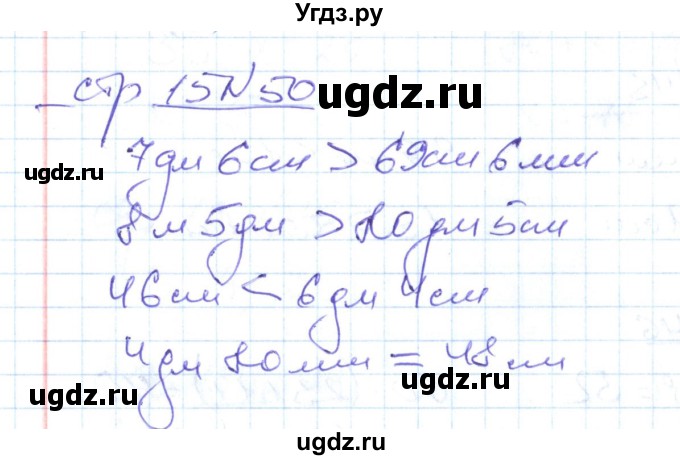 Угдз.ру
стр 15 N 50
ugdz.ru
7дм 6см > 69см 6мм
ugdz.ru
ugdz.ru
8м 5дм > 80дм 5см
46см < 6дм 4см
ugdz.ru
ugdz.ru
4дм 80мм = 48см
ugdz.ru